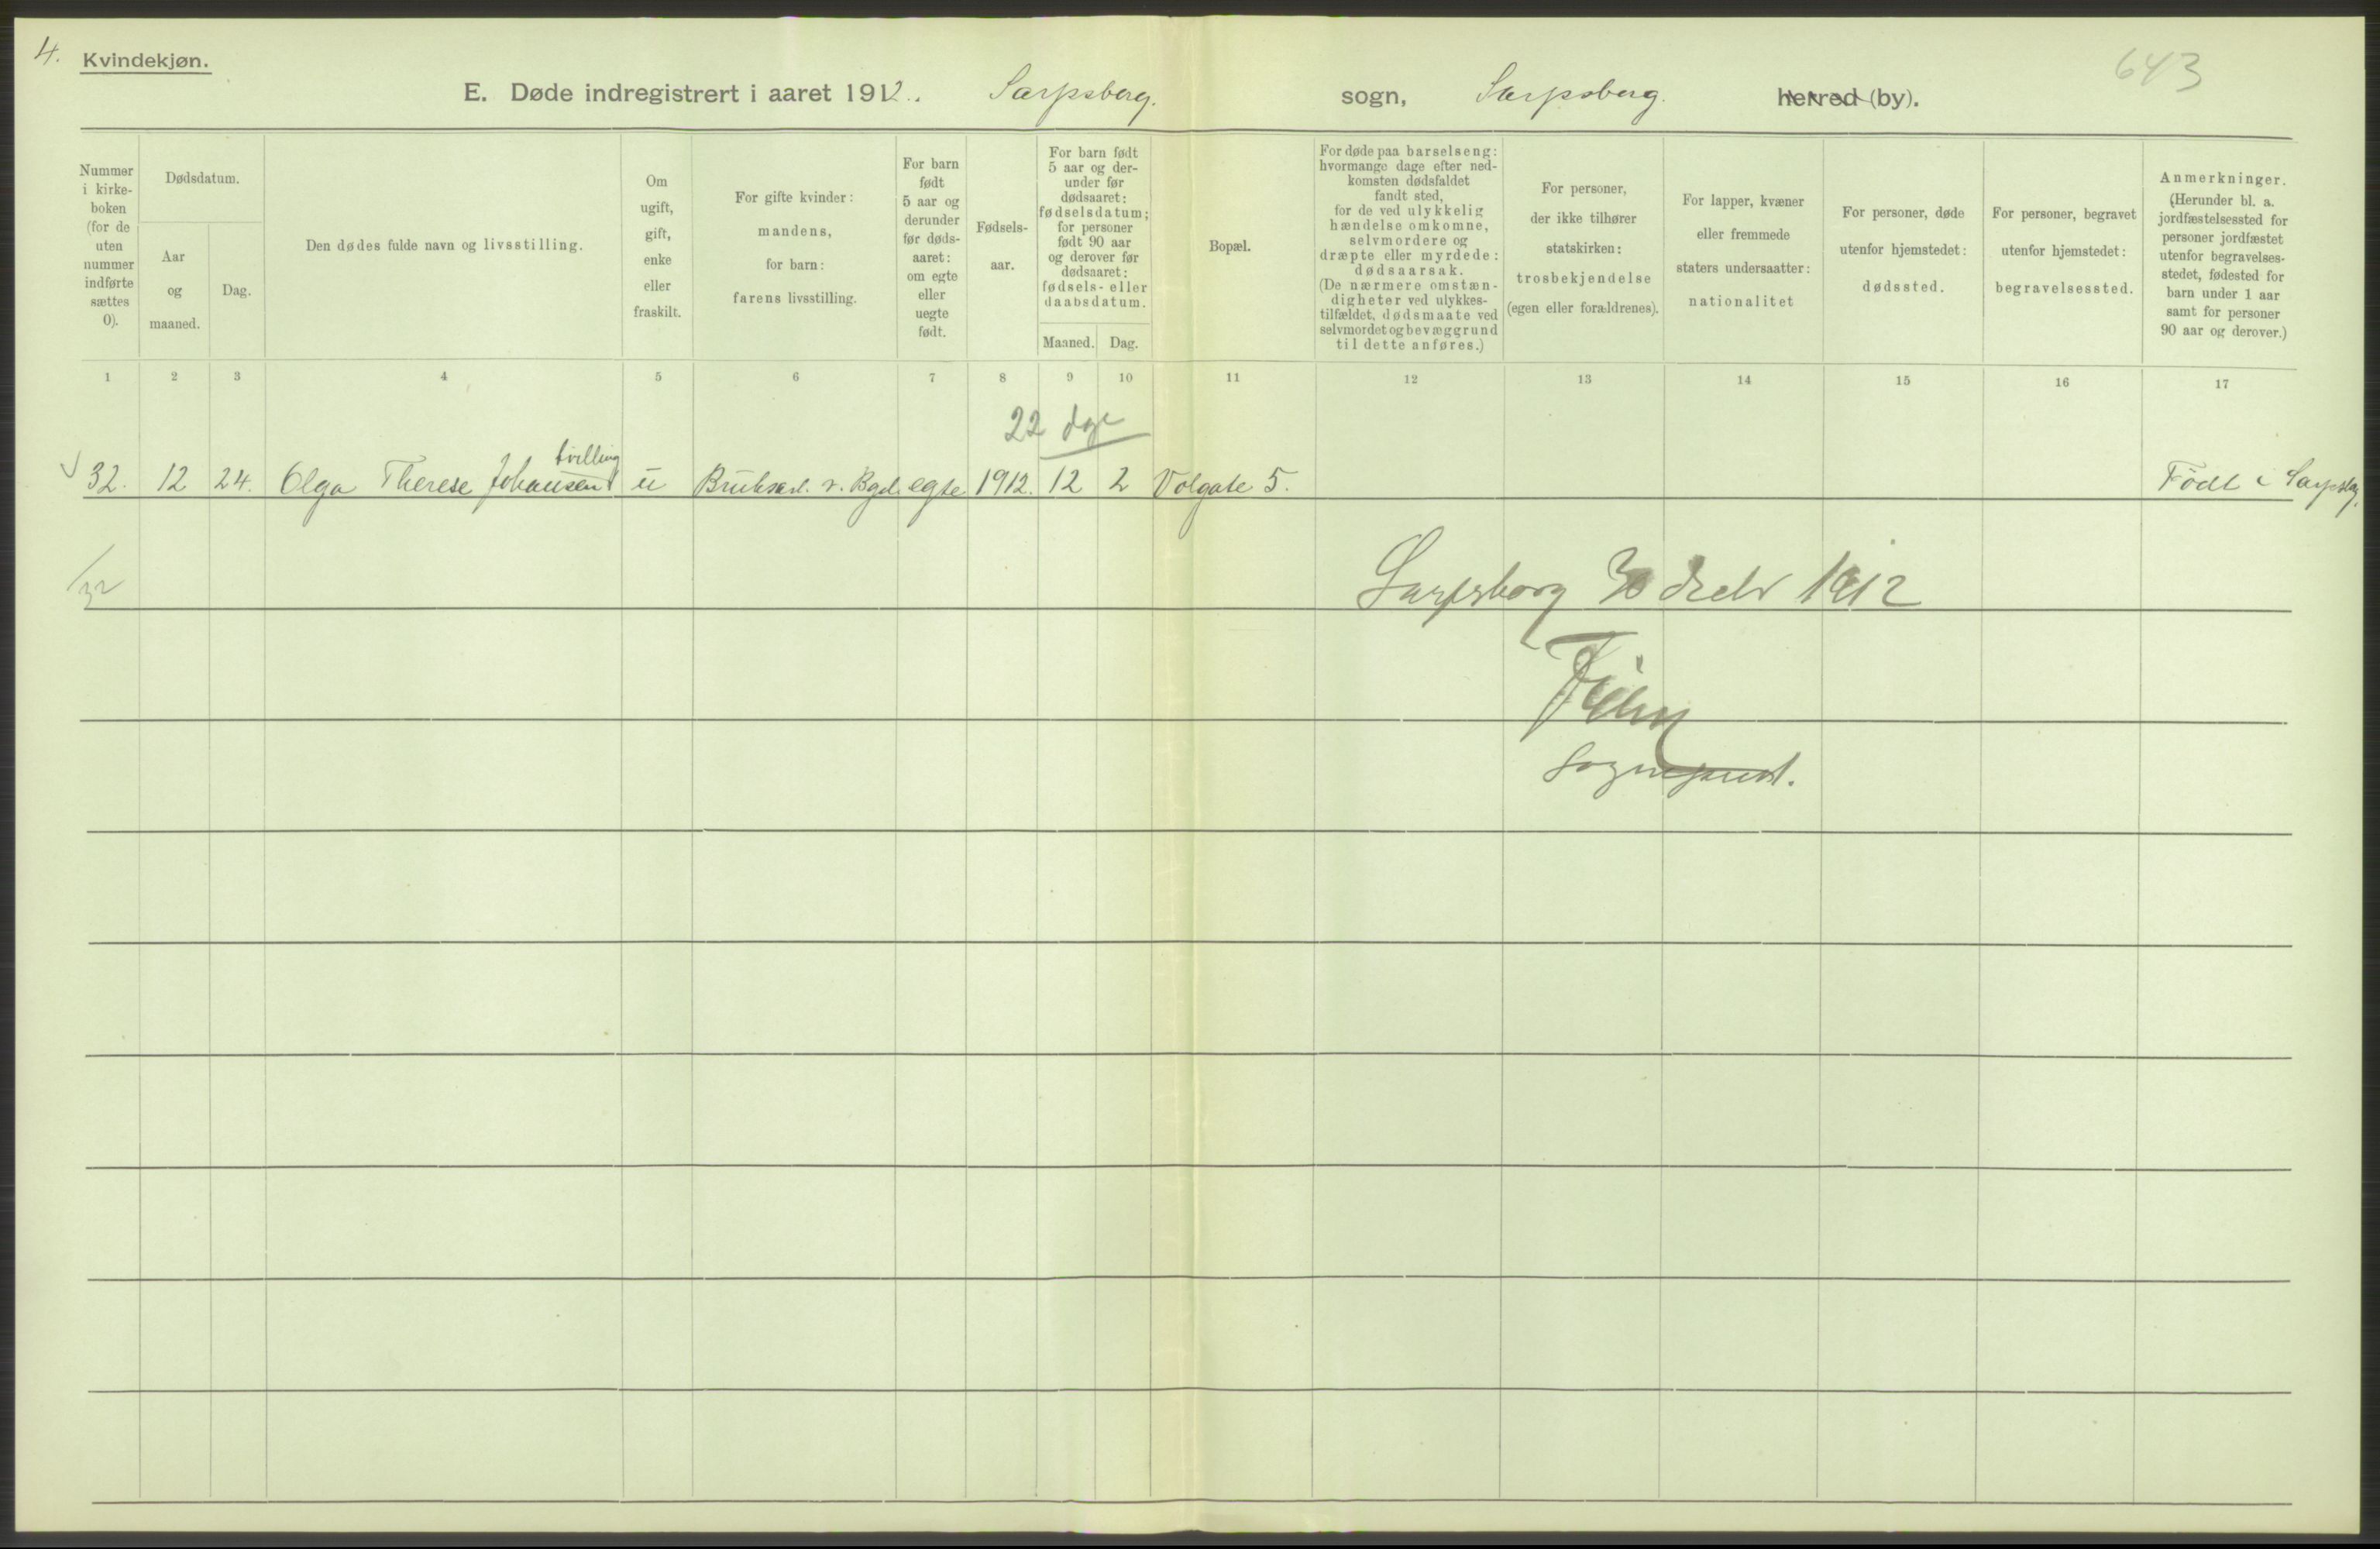 4.
Kvindekjøn.
643
E. Døde indregistrert i aaret 1912. Sarpsborg. sogn, Sarpsborg. herred (by).
Nummer
i kirke-
boken
(for de
uten
nummer
indførte
sættes
0).
Dødsdatum.
Aar
og
maaned.
Dag.
Den dødes fulde navn og livsstilling.
Om
ugift,
gift,
enke
eller
fraskilt.
For gifte kvinder:
mandens,
for barn:
farens livsstilling.
For barn
født
5 aar og
derunder
før døds-
aaret:
om egte
eller
uegte
født.
Fødsels-
aar.
For barn født
5 aar og der-
under før
dødsaaret:
fødselsdatum;
for personer
født 90 aar
og derover før
dødsaaret:
fødsels- eller
daabsdatum.
Maaned. Dag.
Bopæl.
For døde paa barselseng:
hvormange dage efter ned-
komsten dødsfaldet
fandt sted,
for de ved ulykkelig
hændelse omkomne,
selvmordere og
dræpte eller myrdede:
dødsaarsak.
(De nærmere omstæn-
digheter ved ulykkes-
tilfældet, dødsmaate ved
selvmordet og bevæggrund
til dette anføres.)
For personer,
der ikke tilhører
statskirken:
trosbekjendelse
(egen eller forældrenes).
For lapper, kvæner
eller fremmede
staters undersaatter:
nationalitet
For personer, døde
utenfor hjemstedet:
dødssted.
For personer, begravet
utenfor hjemstedet:
begravelsessted.
Anmerkninger.
(Herunder bl. a.
jordfæstelsessted for
personer jordfæstet
utenfor begravelses-
stedet, fødested for
barn under 1 aar
samt for personer
90 aar og derover.)
1 2 3 4 5 6 7 8 9 10 11 12 13 14 15 16 17
22 dge
tvilling
32. 12 24. Olga Therese Johansen u Bruksarb. v. Bgd. egte 1912. 12 2 Volgate 5. Født i Sarpsbg.
/32
Sarpsborg 30 decbr 1912
Sogneprest.